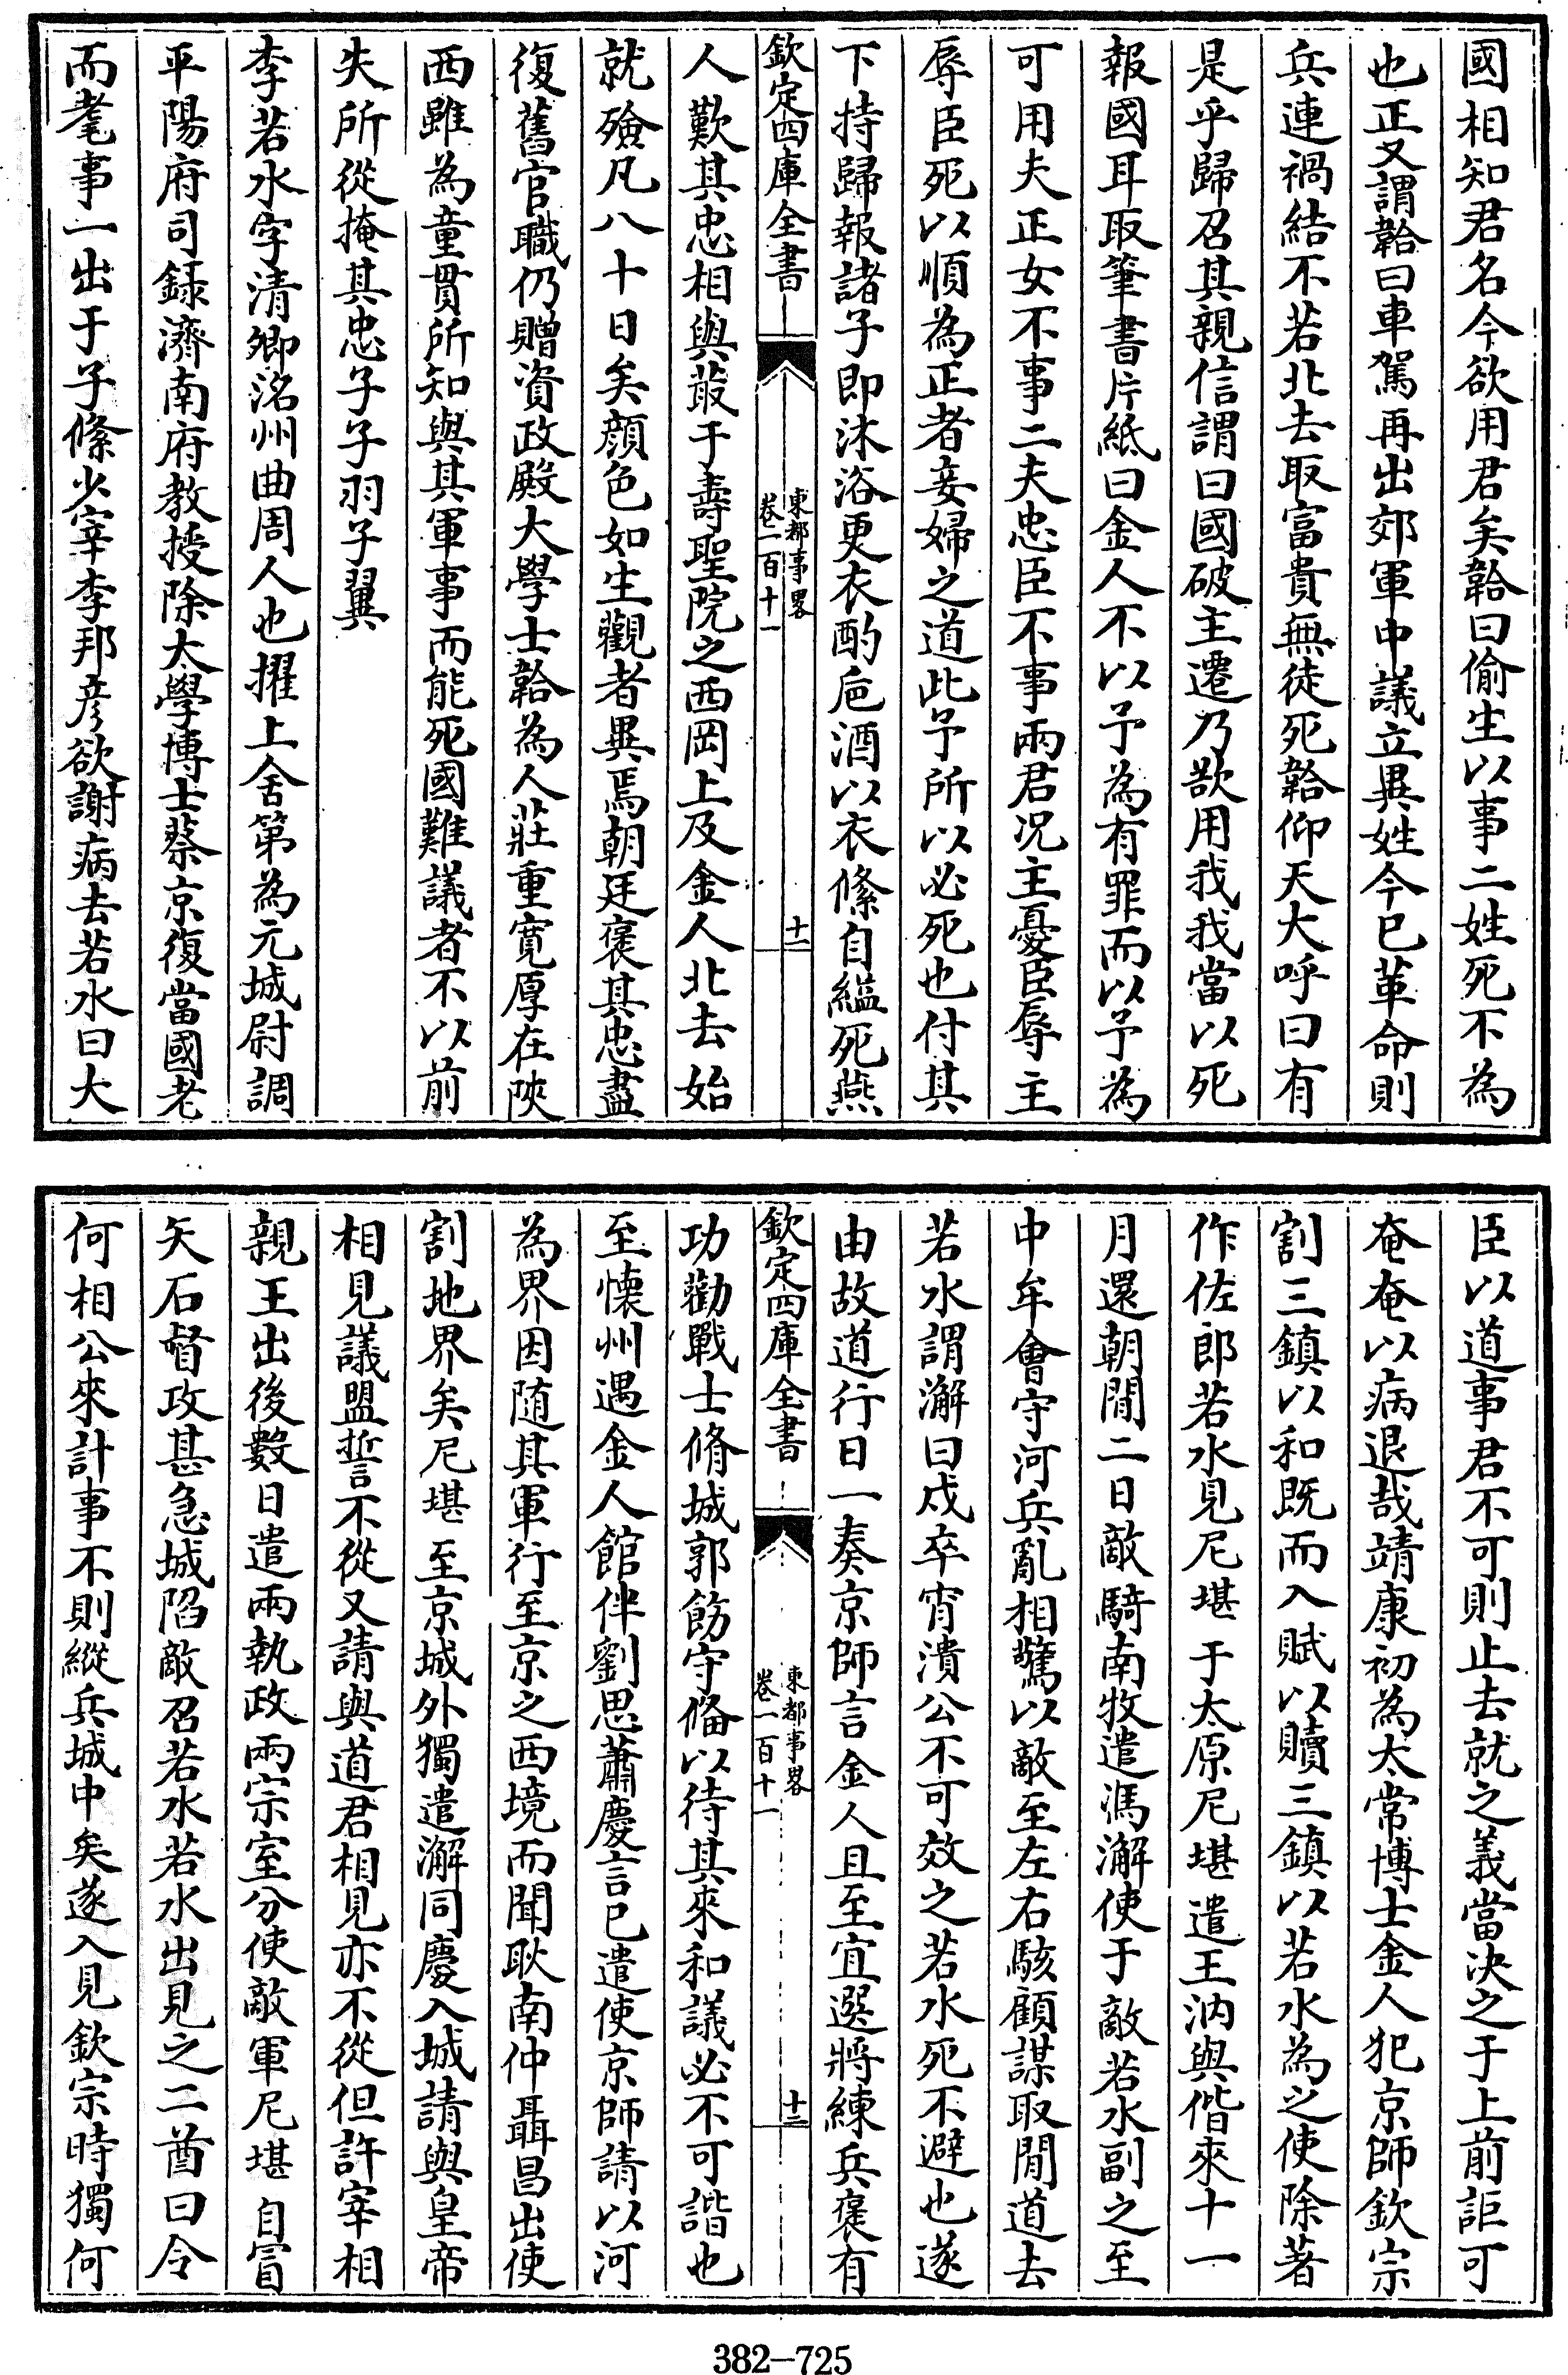 國相知君名今欲用君矣韐曰偷生以事二姓死不為
也正又謂韐曰車駕再出郊軍中議立異姓今已革命則
兵連禍結不若北去取富貴無徒死韐仰天大呼曰有
是乎歸召其親信謂曰國破主遷乃欲用我我當以死
報國耳取筆書片紙曰金人不以予為有罪而以予為
可用夫正女不事二夫忠臣不事兩君况主憂臣辱主
辱臣死以順為正者妾婦之道此予所以必死也付其
下持歸報諸子即沐浴更衣酌巵酒以衣絛自縊死燕
欽定四庫全書
東都事畧
卷一百十一
十一
人歎其忠相與蕞于壽聖院之西岡上及金人北去始
就殮凡八十日矣顔色如生觀者異焉朝廷褒其忠盡
復舊官職仍贈資政殿大學士韐為人莊重寛厚在陜
西雖為童貫所知與其軍事而能死國難議者不以前
失所從掩其忠子子羽子翼
李若水字清卿洺州曲周人也擢上舍第為元城尉調
平陽府司録濟南府教授除太學博士蔡京復當國老
而耄事一出于子絛少宰李邦彦欲謝病去若水曰大
臣以道事君不可則止去就之義當决之于上前詎可
奄奄以病退哉靖康初為太常博士金人犯京師欽宗
割三鎮以和既而入賦以贖三鎮以若水為之使除著
作佐郎若水見尼堪于太原尼堪遣王汭與偕來十一
月還朝閒二日敵騎南牧遣馮澥使于敵若水副之至
中牟會守河兵亂相驚以敵至左右駭顧謀取閒道去
若水謂澥曰戍卒宵潰公不可效之若水死不避也遂
由故道行日一奏京師言金人且至宜選將練兵褒有
欽定四庫全書
東都事畧
卷一百十一
十二
功勸戰士脩城郭飭守備以待其來和議必不可諧也
至懷州遇金人館伴劉思蕭慶言已遣使京師請以河
為界因随其軍行至京之西境而聞耿南仲聶昌出使
割地界矣尼堪至京城外獨遣澥同慶入城請與皇帝
相見議盟誓不從又請與道君相見亦不從但許宰相
親王出後數日遣兩執政兩宗室分使敵軍尼堪自冒
矢石督攻甚急城陷敵召若水若水出見之二酋曰令
何相公來計事不則縱兵城中矣遂入見欽宗時獨何
382-725